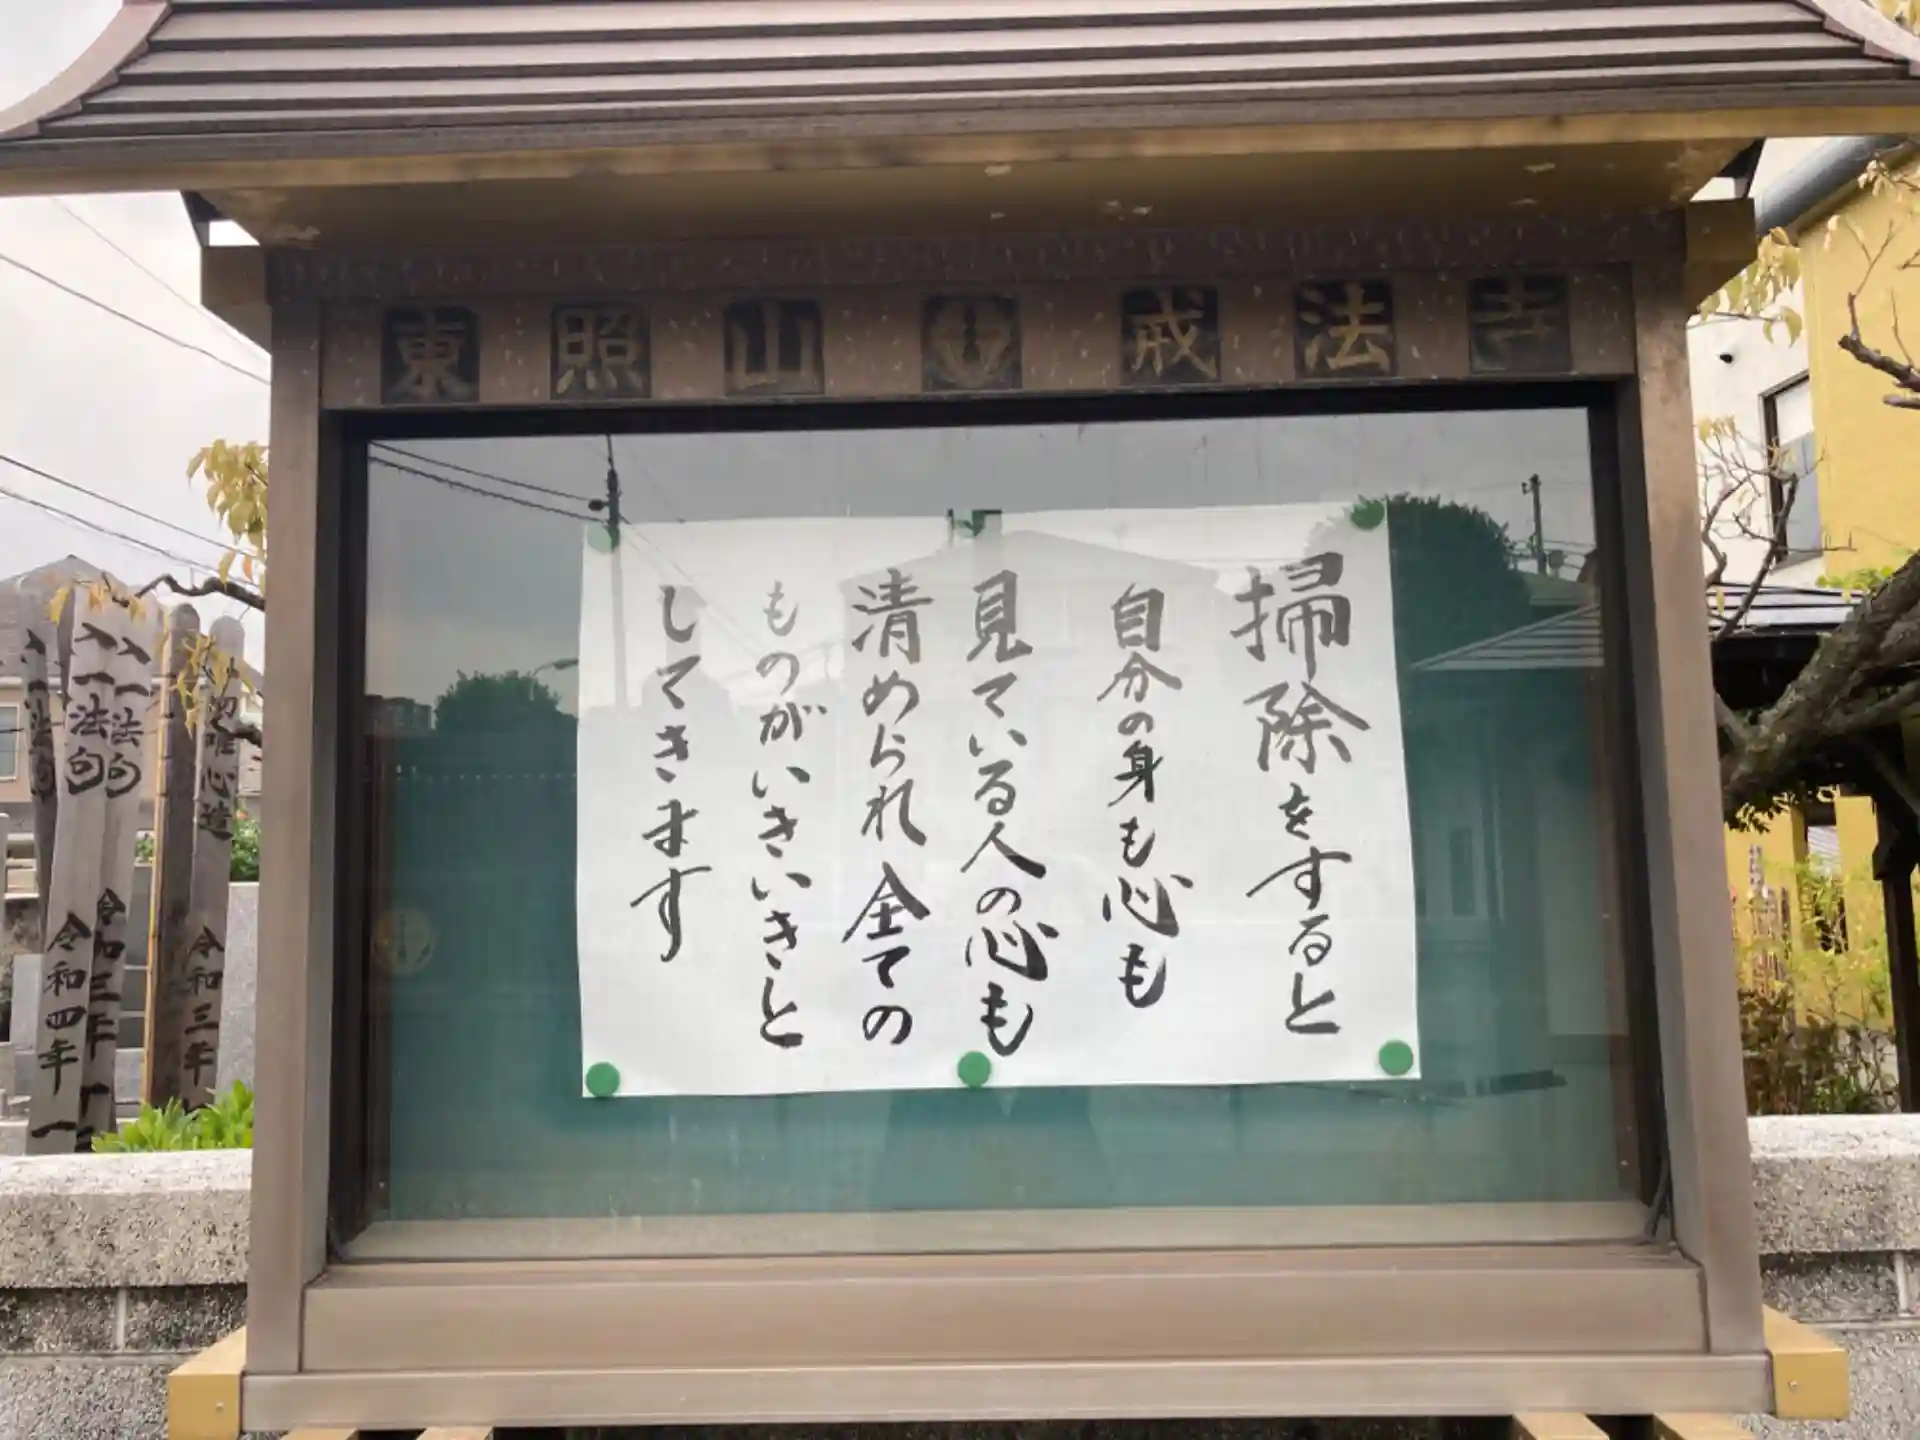 東照山 戒法寺
掃除をすると
自分の身も心も
見ている人の心も
清められ全ての
ものがいきいきと
してきます
入一法句
令和四年
入一法句
令和三年十
唯心造
令和三年